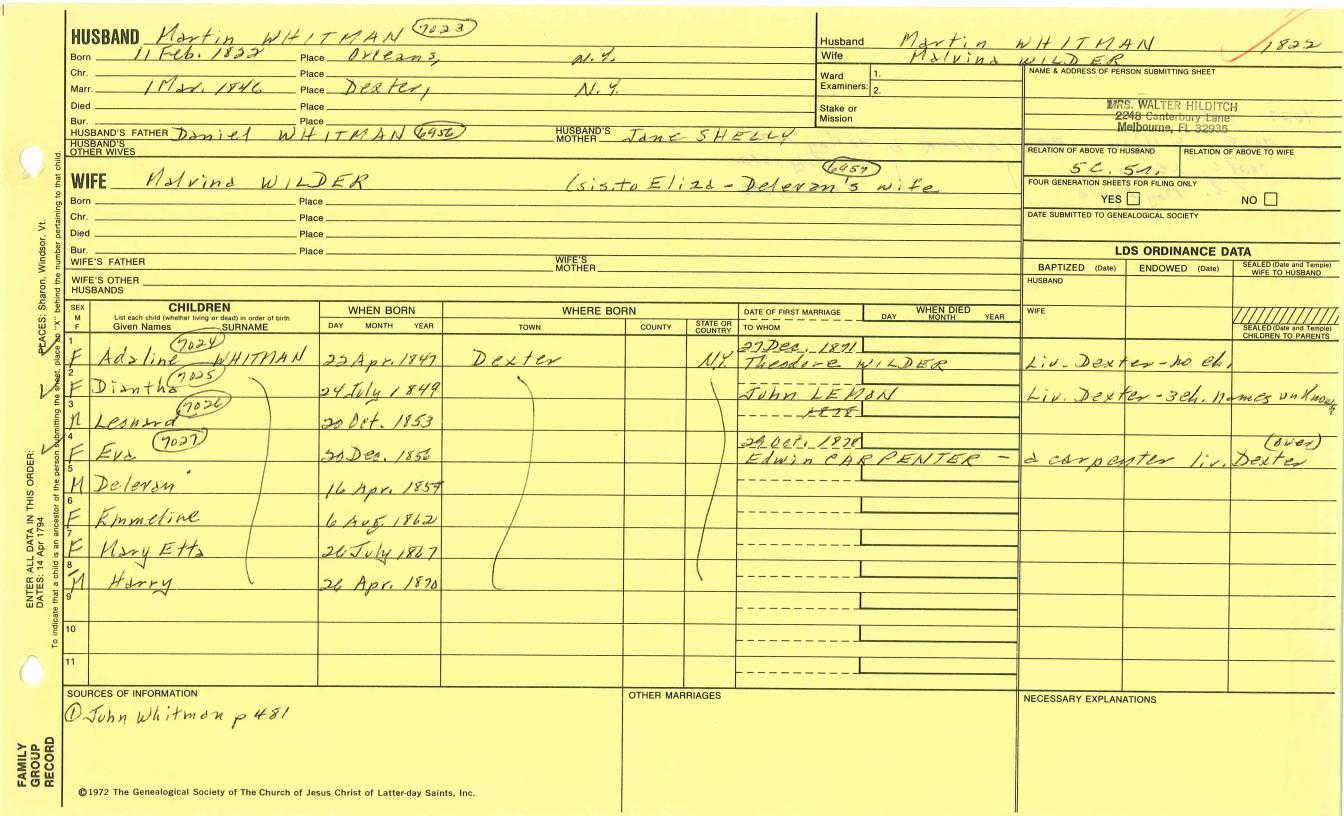 HUSBAND Martin WHITMAN 7023
Born 11 Feb. 1822 Place Orleans, N.Y.
Chr. Place
Marr. 1 Mar. 1846 Place Dexter, N.Y.
Died Place
Bur. Place
HUSBAND'S FATHER Daniel WHITMAN 6956 HUSBAND'S MOTHER Jane SHELLY
HUSBAND'S OTHER WIVES
WIFE Malvina WILDER (sis. to Eliza - Deleran's wife 6957
Born Place
Chr. Place
Died Place
Bur. Place
WIFE'S FATHER WIFE'S MOTHER
WIFE'S OTHER HUSBANDS
Husband Martin WHITMAN 1822
Wife Malvina WILDER
Ward Examiners: 1.
2.
Stake or Mission
NAME & ADDRESS OF PERSON SUBMITTING SHEET
MRS. WALTER HILDITCH
2248 Canterbury Lane
Melbourne, FL 32935
RELATION OF ABOVE TO HUSBAND RELATION OF ABOVE TO WIFE
5C. 5r.
FOUR GENERATION SHEETS FOR FILING ONLY
YES NO
DATE SUBMITTED TO GENEALOGICAL SOCIETY
LDS ORDINANCE DATA
BAPTIZED (Date) ENDOWED (Date) SEALED (Date and Temple) WIFE TO HUSBAND
HUSBAND
WIFE
SEALED (Date and Temple) CHILDREN TO PARENTS
SEX M F
CHILDREN
List each child (whether living or dead) in order of birth
Given Names SURNAME
WHEN BORN
DAY MONTH YEAR
WHERE BORN
TOWN COUNTY STATE OR COUNTRY
DATE OF FIRST MARRIAGE
TO WHOM
WHEN DIED
DAY MONTH YEAR
1 F Adaline WHITMAN 7024 22 Apr. 1847 Dexter N.Y. 27 Dec. 1871 Theodore WILDER Liv. Dexter-no ch.
2 F Diantha 7025 24 July 1849 John LEMON Liv. Dexter-3ch. names unknown
3 M Leonard 7026 20 Oct. 1853
4 F Eva 7027 20 Dec. 1856 29 Oct. 1878 Edwin CARPENTER - a carpenter liv. Dexter (over)
5 M Deleran 16 Apr. 1859
6 F Emmeline 6 Aug. 1862
7 F Mary Etta 26 July 1867
8 M Harry 26 Apr. 1870
9
10
11
SOURCES OF INFORMATION
① John Whitman p 481
OTHER MARRIAGES
NECESSARY EXPLANATIONS
©1972 The Genealogical Society of The Church of Jesus Christ of Latter-day Saints, Inc.
FAMILY GROUP RECORD
ENTER ALL DATA IN THIS ORDER:
DATES: 14 Apr 1794 PLACES: Sharon, Windsor, Vt.
To indicate that a child is an ancestor of the person submitting the sheet, place an "X" behind the number pertaining to that child.